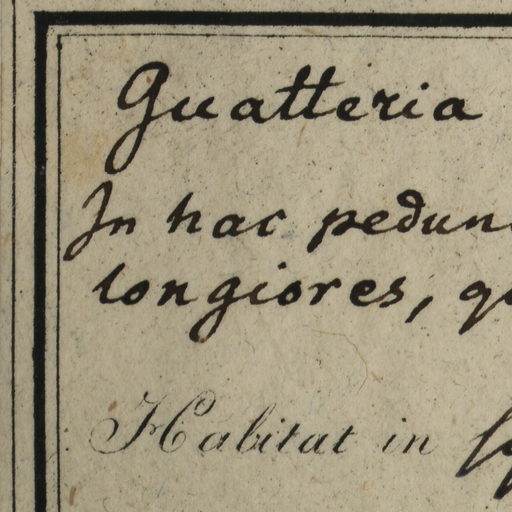 Guatteria
In hac pedun
longiores, q
Habitat in